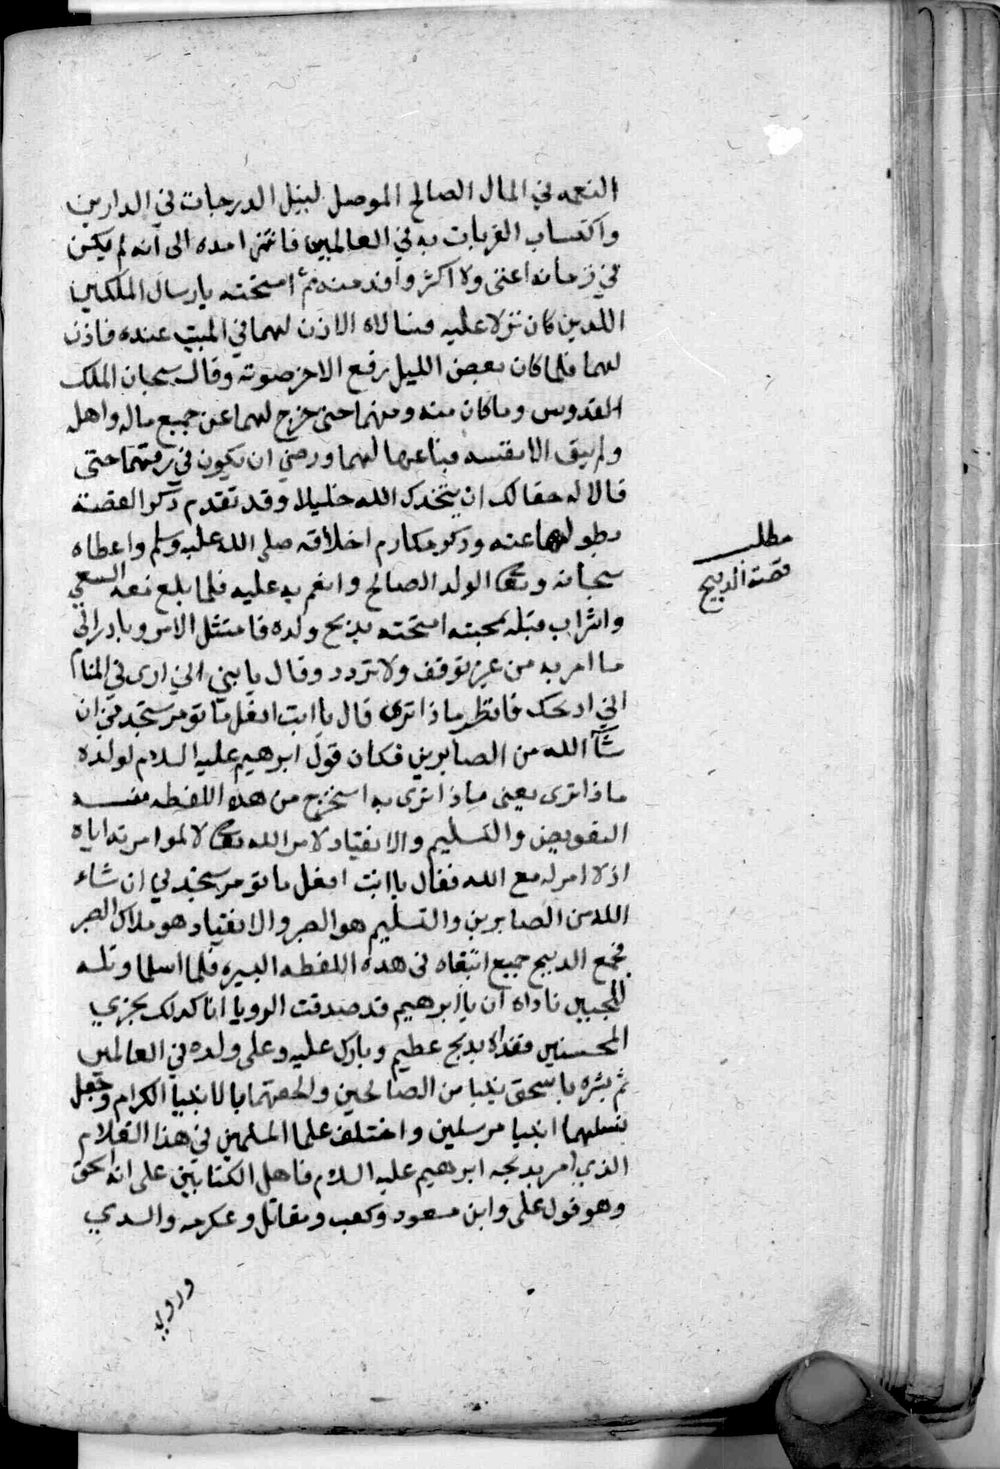 النعمه في المال الصالح الموصل لنيل الدرجات في الدارين
واكتساب القربات به في العالمين فاتمن امده الى انه لم يكن
في زمانه اغنى ولا اكثر وافد منه ثم امتحنه بارسال الملكين
اللذين كان نزلا عليه فسالاه الاذن لهما في المبيت عنده فاذن
لهما فلما كان بعض الليل رفع الاخر صوته وقال سبحان الملك
القدوس وماكان منه ومنهما حتى خرج لهما عن جميع ماله واهله
ولم يبق الا نفسه فباعها لهما ورضي ان يكون في رقهما حتى
قالا له حقا لك ان يتخذك الله خليلا وقد تقدم ذكر القصة
بطولها عنه وذكر مكارم اخلاقه صلى الله عليه وسلم واعطاه
سبحانه وتعا الولد الصالح وانعم به عليه فلما بلغ معه السعي
واشراب قبله بمحبته امتحنه بذبح ولده فامتثل الامر وبادر الى
ما امر به من غير توقف ولا تردد وقال يا بني اني ارى في المنام
اني اذبحك فانظر ماذا ترى قال يا ابت افعل ما تومر ستجدني ان
شآ الله من الصابرين فكان قول ابرهيم عليه السلام لولده
ماذا ترى يعني ماذا ترى به استخرج من هذه اللفظه منه
التفويض والتسليم والانقياد لامر الله تعا لا لموامرته اياه
اذ لا امر له مع الله فقال يا ابت افعل ما تومر ستجدني ان شاء
الله من الصابرين والتسليم هو الصبر والانقياد هو ملاك الصبر
فجمع الذبيح جميع ابتغاه في هذه اللفظه اليسيره فلما اسلما وتله
للجبين ناداه ان يا ابرهيم قد صدقت الرويا انا كذلك نجزي
المحسنين ففداه بذبح عظيم وبارك عليه وعلى ولده في العالمين
ثم بشره باسحق نبيا من الصالحين والحقهما بالانبيا الكرام وجعل
نسلهما انبيا مرسلين واختلف علما المسلمين في هذا الغلام
الذي امر بذبحه ابرهيم عليه السلام فاهل الكتابين على انه اسحق
وهو قول علي وابن مسعود وكعب ومقاتل وعكرمه والسدي
مطلب
قصة الذبيح
وروي